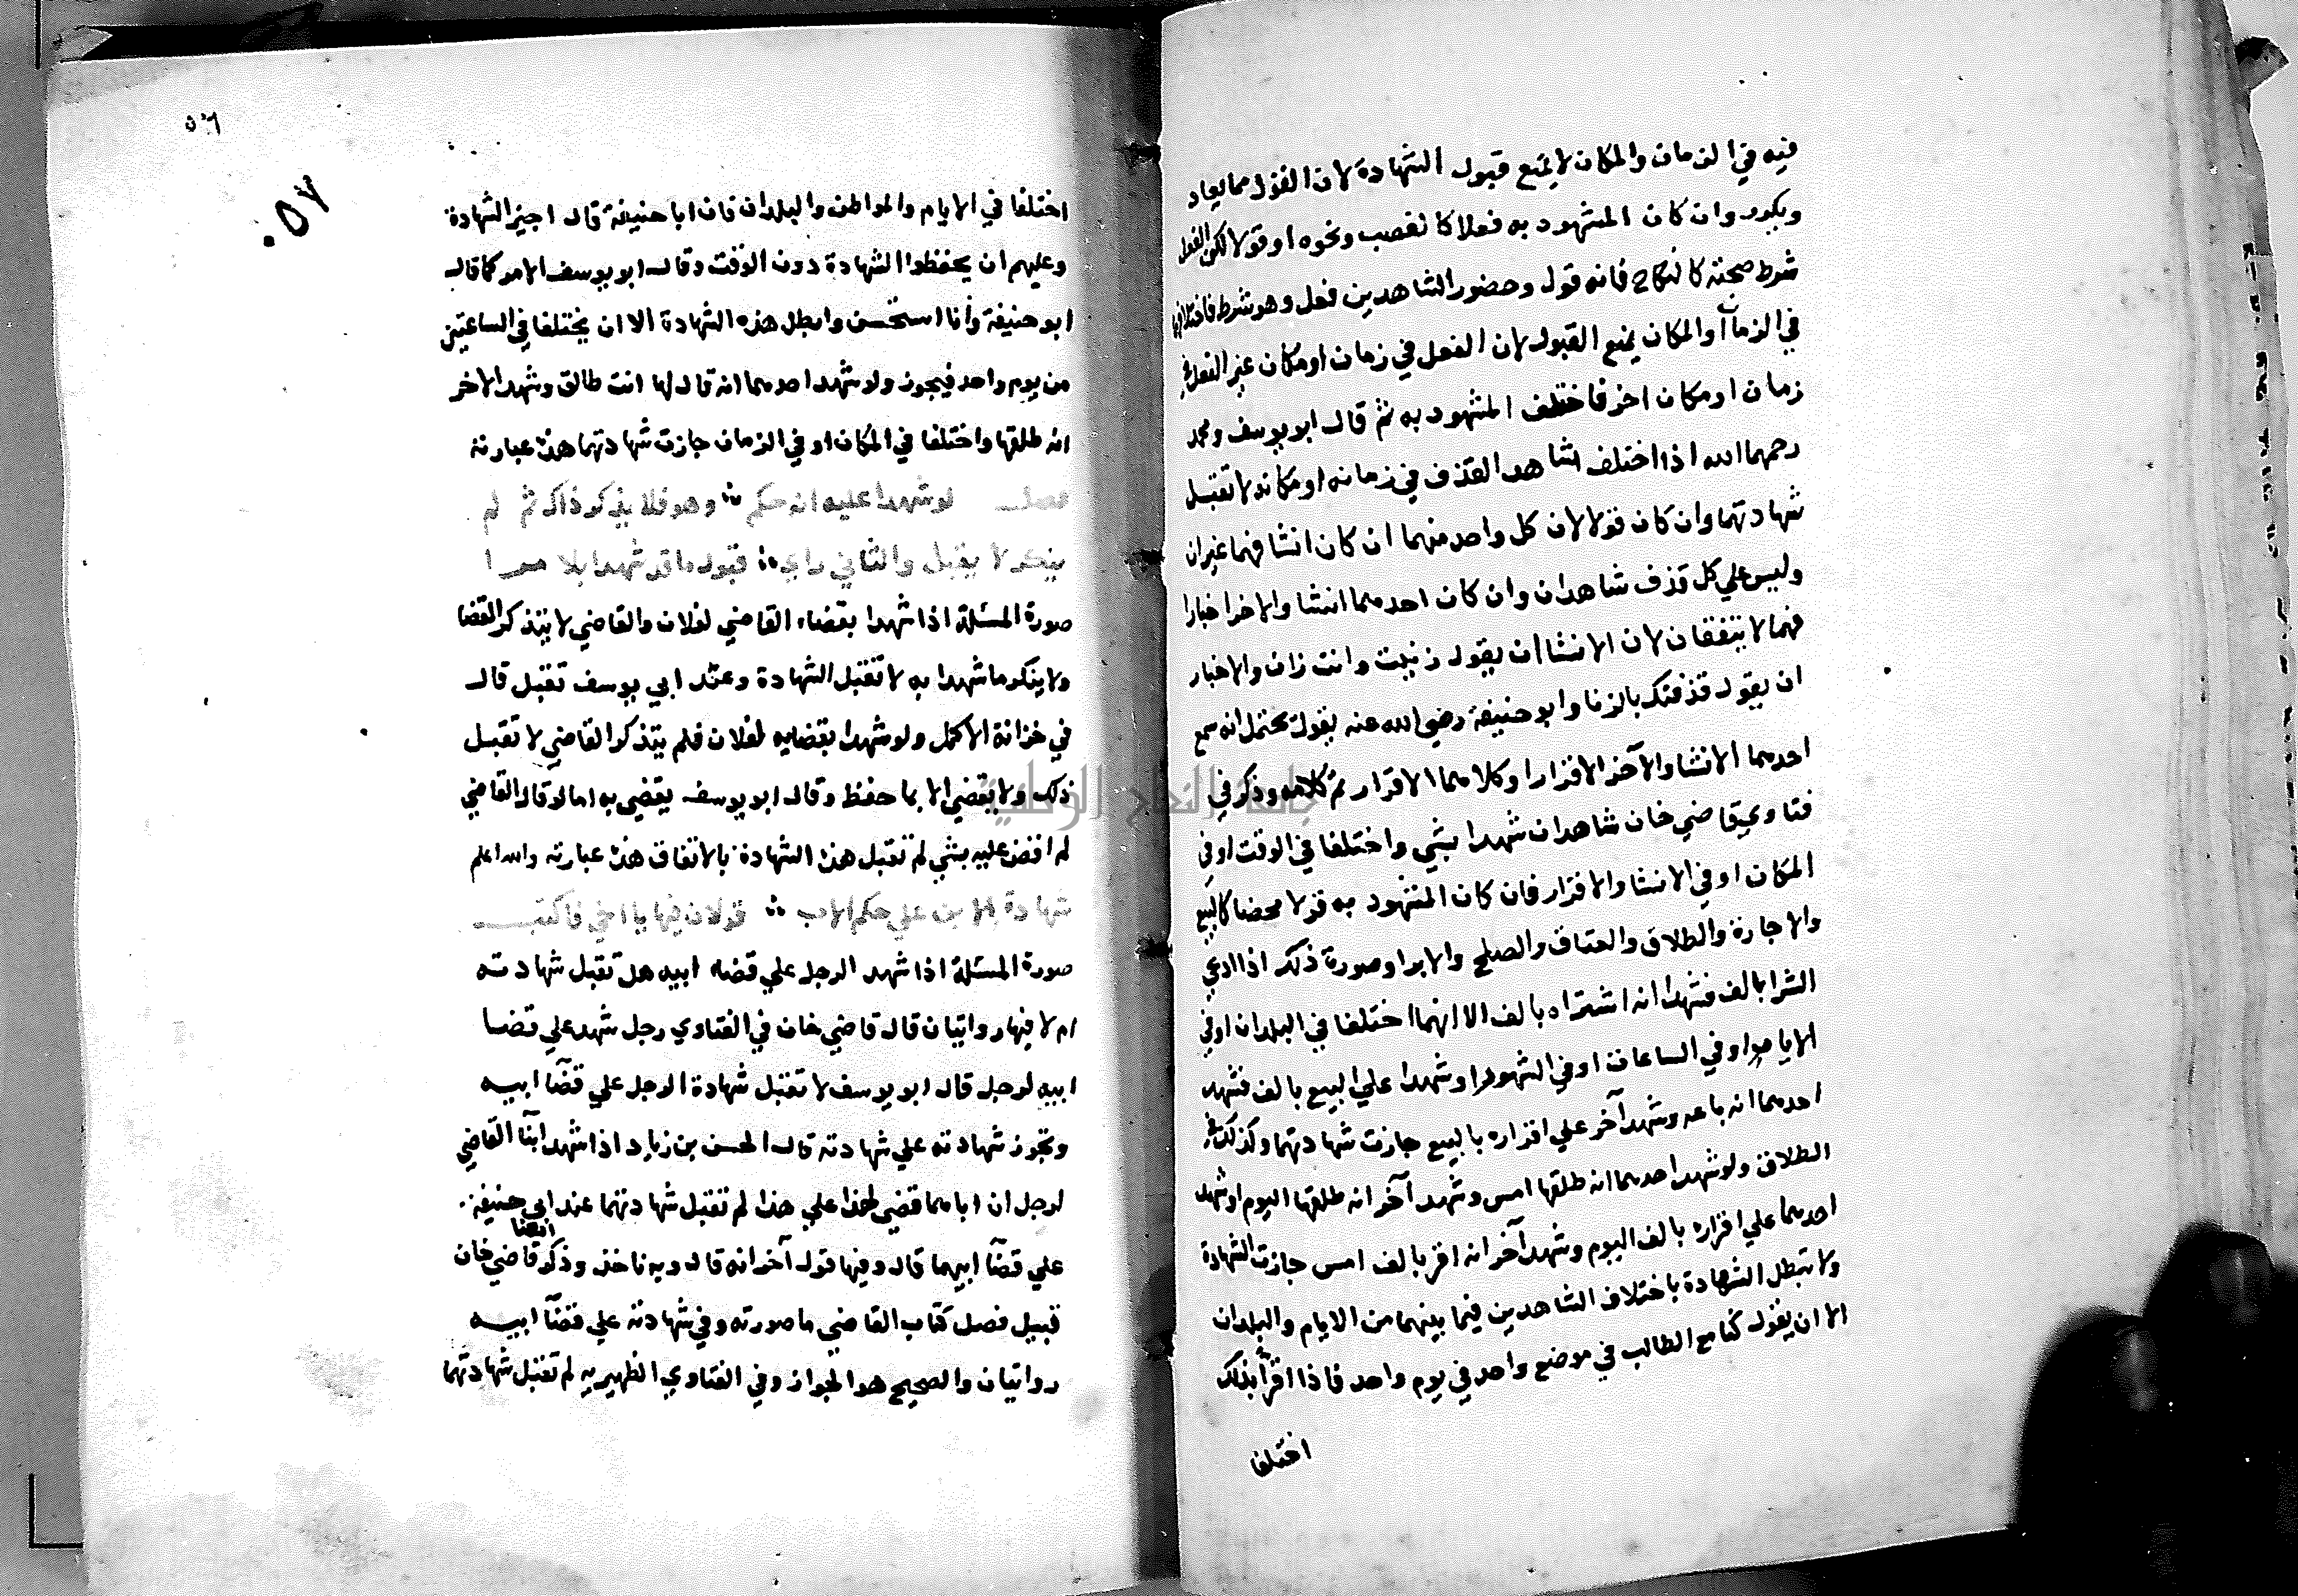 فيه في الزمان والمكان لا يمنع قبول الشهادة لان القول مما يعاد
ويكرر وان كان المشهود به فعلا كالغصب ونحوه او قولا لكن الفعل
شرط صحته كالنكاح فانه قول وحضور الشاهدين فعل وهو شرط فاختلافهما
في الزمان والمكان يمنع القبول لان الفعل في زمان او مكان غير الفعل في
زمان او مكان اخر فاختلف المشهود به ثم قال ابو يوسف ومحمد
رحمهما الله اذا اختلف شاهدا القذف في زمانه او مكانه لا تقبل
شهادتهما وان كان قولا لان كل واحد منهما ان كان انشا فهما غيران
وليس علي كل قذف شاهدان وان كان احدهما انشا والاخر اخبارا
فهما لا يتفقان لان الانشا ان يقول زنيت وانت زان والاخبار
ان يقول قذفتك بالزنا وابو حنيفة رضي الله عنه يقول يحتمل انه سمع
احدهما الانشا والآخر الاقرار او كلاهما الاقرار تم كلامه وذكر في
فتاوي قاضي خان شاهدان شهدا بشي واختلفا في الوقت او في
المكان او في الانشا والاقرار فان كان المشهود به قولا محضا كالبيع
والاجارة والطلاق والعتاق والصلح والابرا وصورة ذلك اذا ادعي
الشرا بالف فشهدا انه اشتراه بالف الا انهما اختلفا في البلدان او في
الايام او في الساعات او في الشهور او شهدا علي البيع بالف فشهد
احدهما انه باعه وشهد آخر علي اقراره بالبيع جازت شهادتهما وكذلك في
الطلاق ولو شهد احدهما انه طلقها امس وشهد آخر انه طلقها اليوم او شهد
احدهما علي اقراره بالف اليوم وشهد آخر انه اقر بالف امس جازت الشهادة
ولا تبطل الشهادة باختلاف الشاهدين فيما بينهما من الايام والبلدان
الا ان يقول كنا مع الطالب في موضع واحد في يوم واحد فاذا اقرا بذلك
اختلفا
٥٦
٠٥٧
اختلفا في الايام والمواطن والبلدان فان ابا حنيفة قال اجيز الشهادة
وعليهم ان يحفظوا الشهادة دون الوقت وقال ابو يوسف الامر كما قال
ابو حنيفة وأنا استحسن وابطل هذه الشهادة الا ان يختلفا في الساعتين
من يوم واحد فيجوز ولو شهد احدهما انه قال لها انت طالق وشهد الاخر
انه طلقها واختلفا في المكان او في الزمان جازت شهادتهما هذه عبارته
فصل لو شهدا عليه انه حكم ∴ وهو فلا يذكر ذاك ثم لم
ينكر لا يقبل والثاني راي ∴ قبول ما قد شهدا بلا
صورة المسئلة اذا شهدا بقضاء القاضي لفلان والقاضي لا يتذكر القضا
ولا ينكر ما شهدا به لا تقبل الشهادة وعند ابي يوسف تقبل قال
في خزانة الاكمل ولو شهدا بقضايه لفلان فلم يتذكر القاضي لا تقبل
ذلك ولا يقضي الا بما حفظ وقال ابو يوسف يقضي به اما لو قال القاضي
لم اقض عليه بشي لم تقبل هذه الشهادة بالاتفاق هذه عبارته والله اعلم
شهادة الابن علي حكم الاب ∴ قولان فيها يا اخي فاكتب
صورة المسئلة اذا شهد الرجل علي قضاء ابيه هل تقبل شهادته
ام لا فيها روايتان قال قاضي خان في الفتاوي رجل شهد علي قضا
ابيه لرجل قال ابو يوسف لا تقبل شهادة الرجل علي قضآ ابيه
وتجوز شهادته علي شهادته قال الحسن بن زياد اذا شهد ابنا القاضي
لرجل ان اباهما قضي لهذا علي هذا لم تقبل شهادتهما عند ابي حنيفة
علي قضآ ابيهما قال وفيها قول آخر انه قال وبه ناخذ وذكر قاضي خان ايضا
قبيل فصل كتاب القاضي ما صورته وفي شهادته علي قضآ ابيه
روايتان والصحيح هو الجواز وفي الفتاوي الظهيريه لم تقبل شهادتهما
جامعة النجاح الوطنية